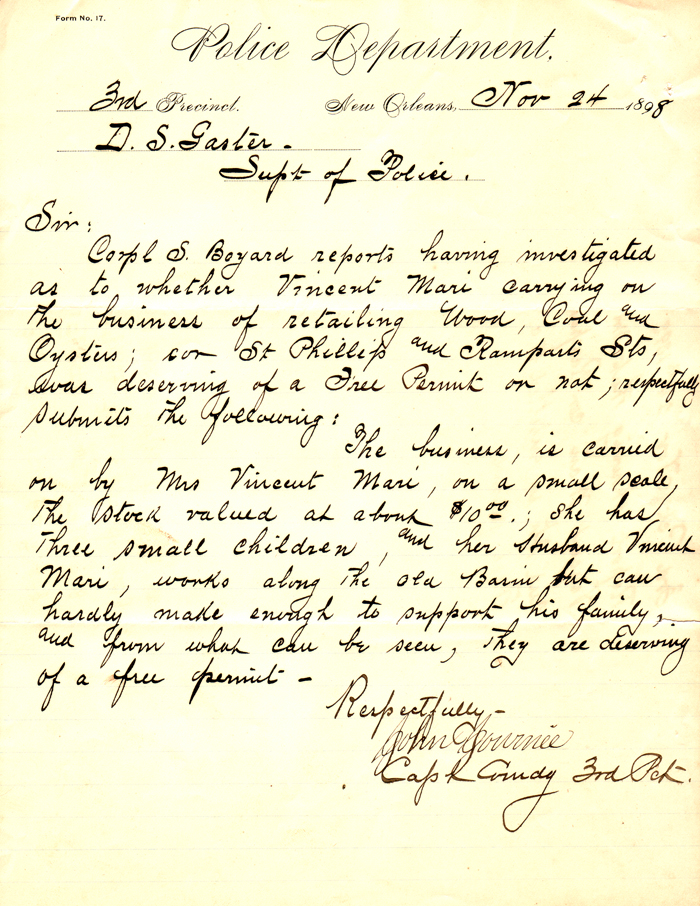 Form No. 17.
Police Department.
3rd Precinct. New Orleans, Nov 24 1898
D. S. Gaster.
Supt of Police.
Sir:
Corpl S. Boyard reports having investigated
as to whether Vincent Mari carrying on
the business of retailing Wood, Coal and
Oysters; cor St Phillip and Ramparts Sts,
was deserving of a Free Permit or not; respectfully
submits the following:
The business, is carried
on by Mrs Vincent Mari, on a small scale,
the stock valued at about $10.00.; she has
three small children, and her Husband Vincent
Mari, works along the old Basin but can
hardly made enough to support his family,
and from what can be seen, they are deserving
of a free permit -
Respectfully -
John Journée
Capt Comdg 3rd Pct.